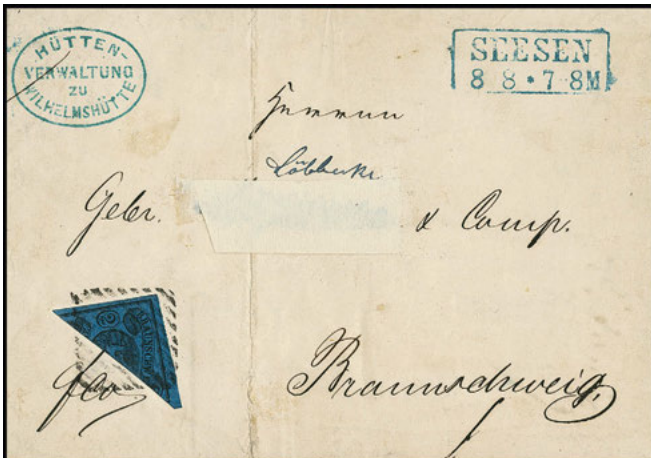 HÜTTEN-
VERWALTUNG
ZU
WILHELMSHÜTTE
SEESEN
8 8 • 7-8M
Herren
Löbbecke
Gebr. & Comp.
BRAUNSCH
fco
Braunschweig,